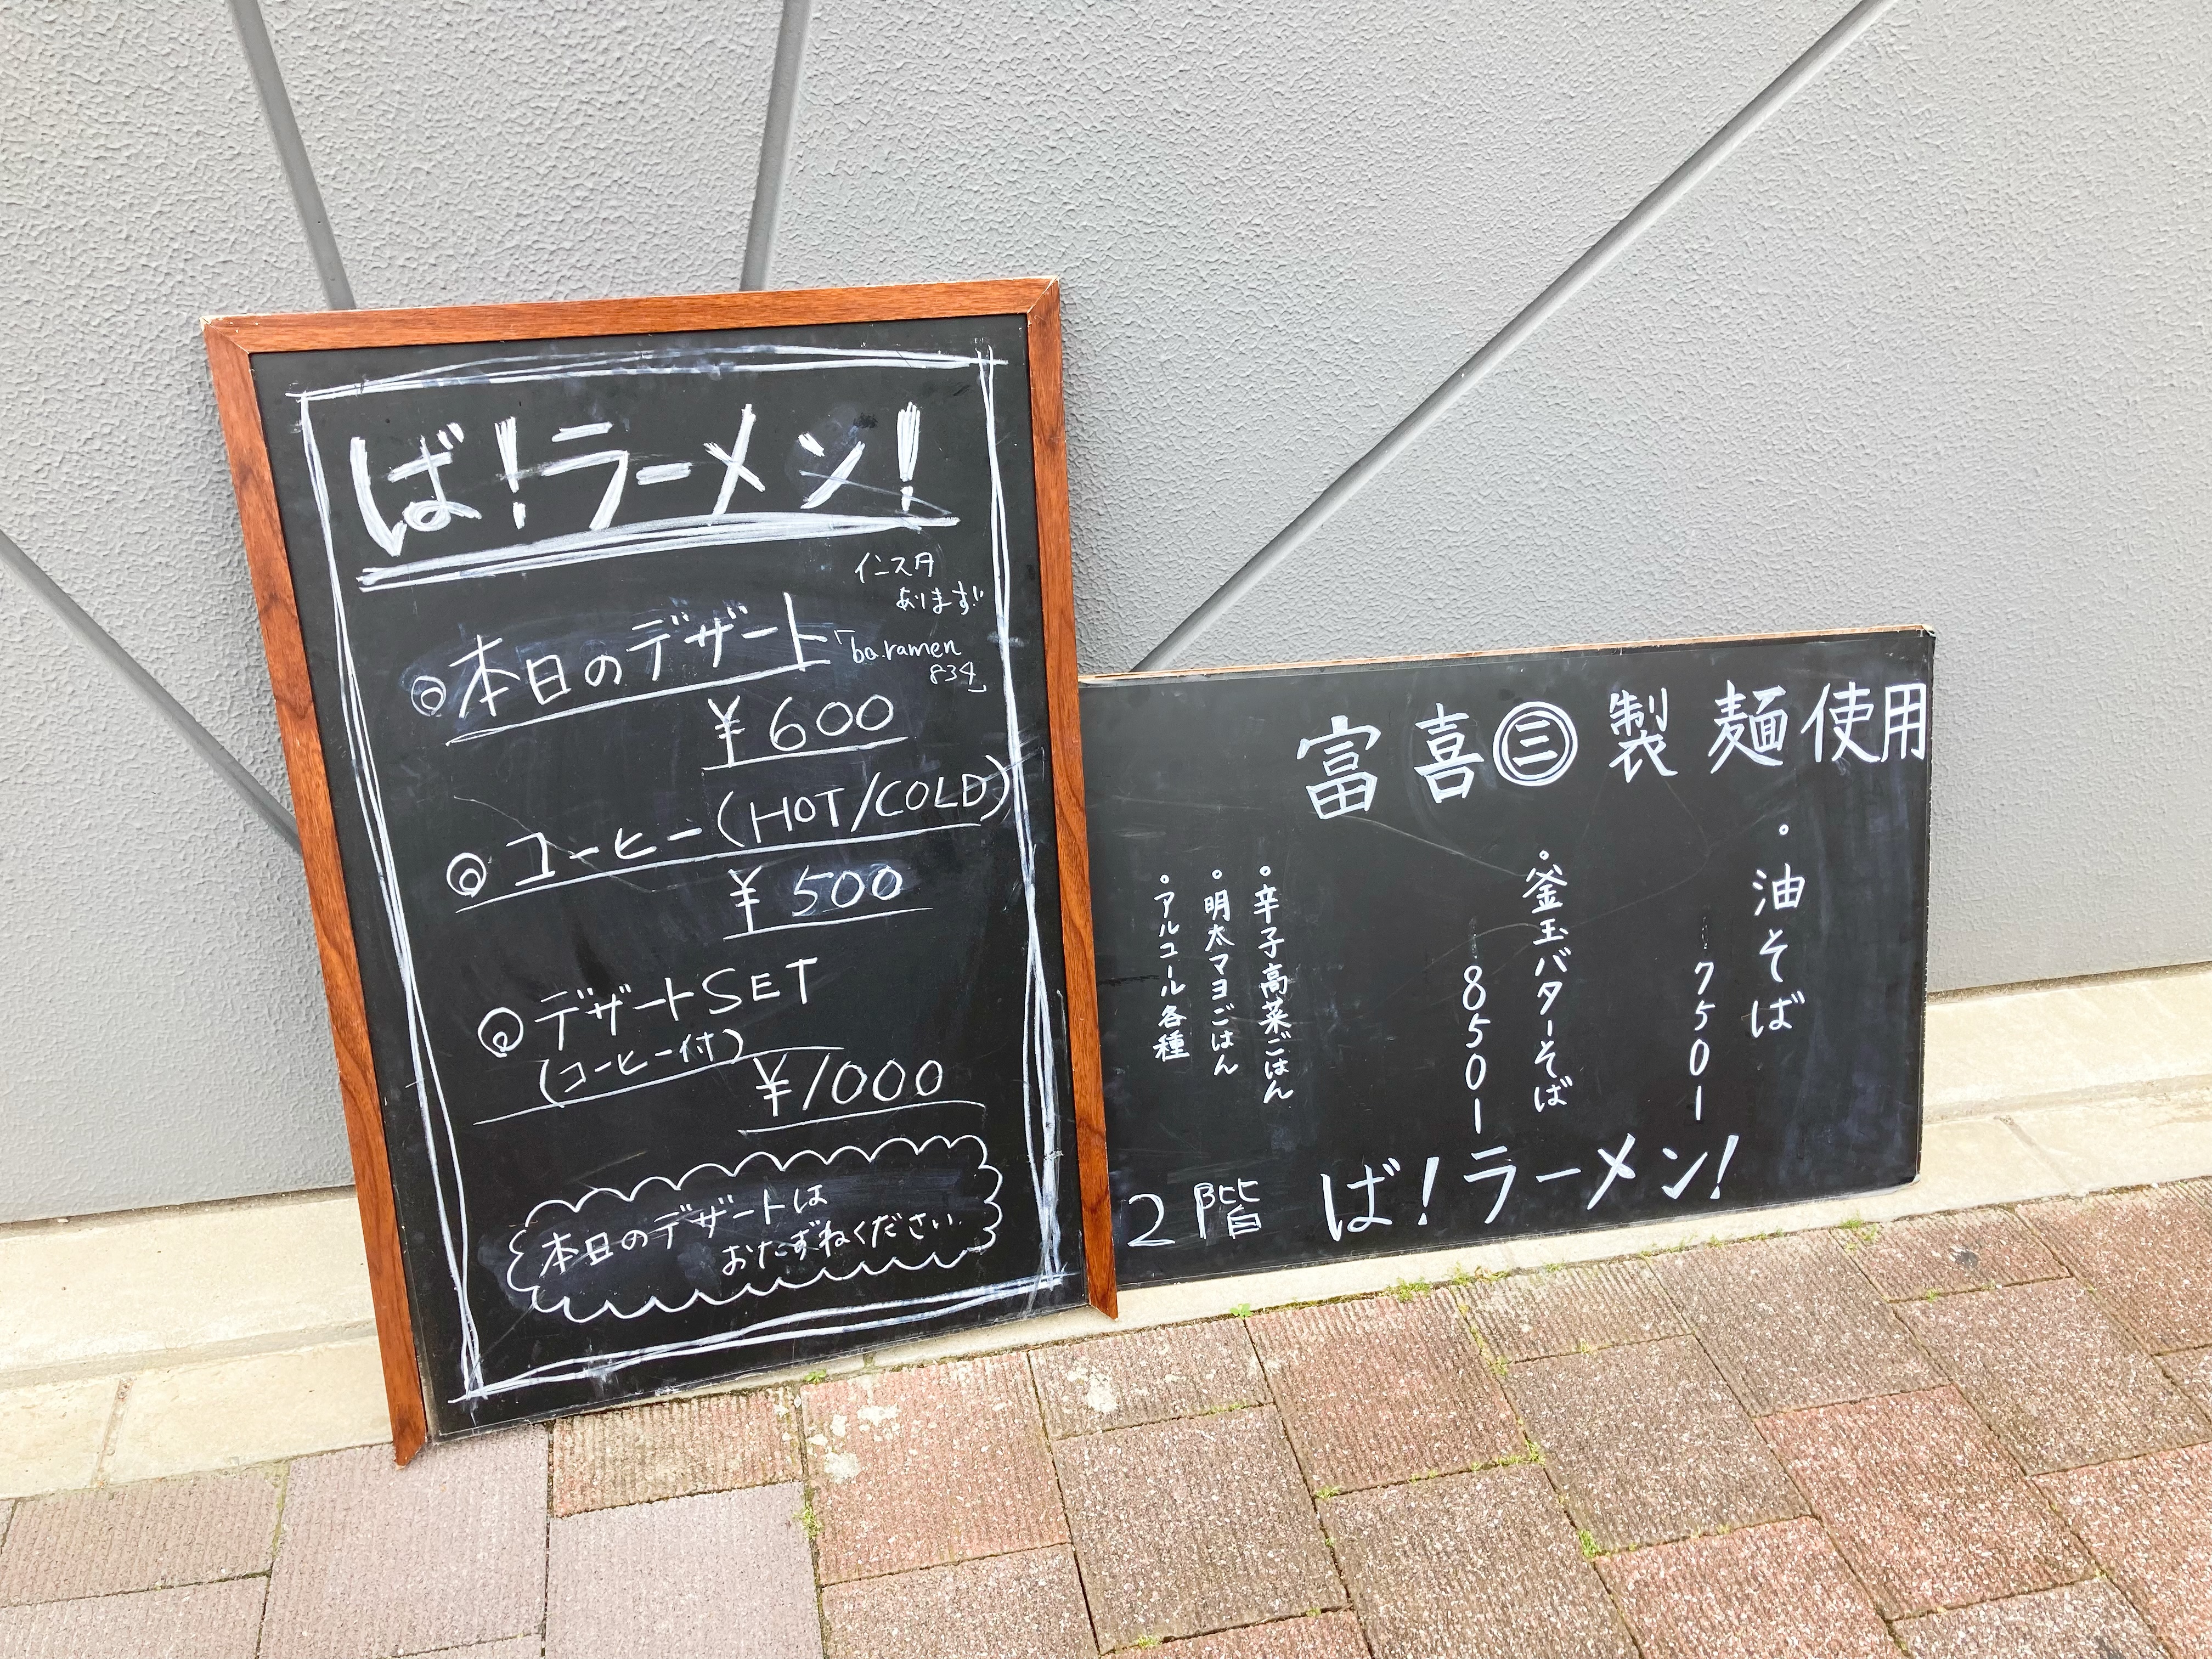 ば！ラーメン！
インスタ
あります!!
「ba.ramen
834」
◎本日のデザート
¥600
◎コーヒー(HOT/COLD)
¥500
◎デザートSET
(コーヒー付)
¥1000
本日のデザートは
おたずねください
富喜㊂製麺使用
・油そば
750ー
・釜玉バターそば
850ー
・辛子高菜ごはん
・明太マヨごはん
・アルコール各種
2階 ば！ラーメン！